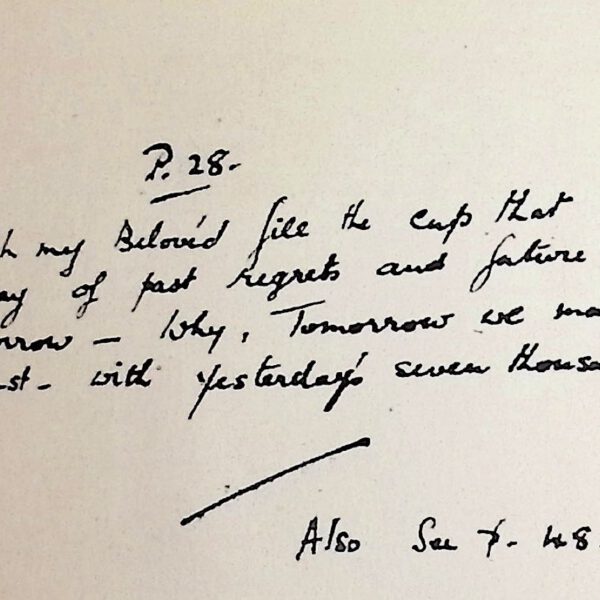 P. 28.
h my Belov'd fill the cup that
ay of past regrets and future
rrow - Why, Tomorrow we ma
st - with Yesterday's seven thousa
Also See p. 48.